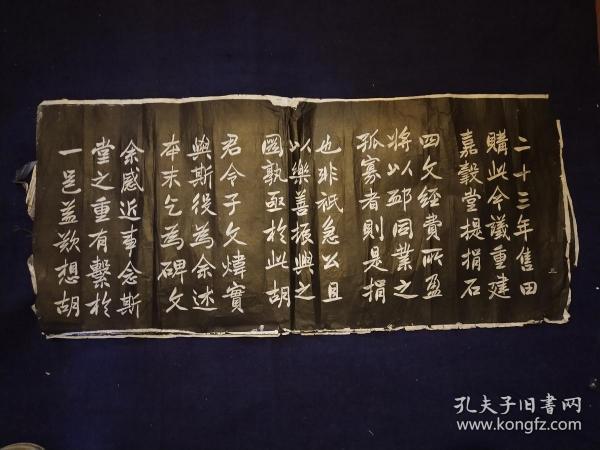 二十三年售田
購此今議重建
嘉穀堂提捐石
四文經費所盈
將以邺同業之
孤寡者則是捐
也非祇急公且
以樂善振興之
圖孰亟於此胡
君令子文煒實
與斯役為余述
本末乞為碑文
余感近事念斯
堂之重有繫於
一邑益欷想胡
三
孔夫子旧书网
www.kongfz.com